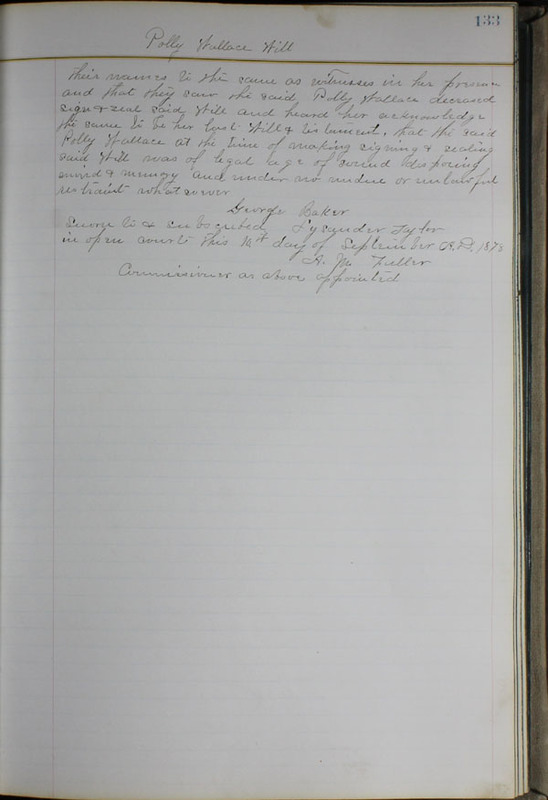 133
Polly Wallace Will
their names to the same as witnesses in her presence
and that they saw the said Polly Wallace deceased
sign & seal said Will and heard her acknowledge
the same to be her last Will & testament, that the said
Polly Wallace at the time of making signing & sealing
said Will was of legal age of sound disposing
mind & memory and under no undue or unlawful
restraint whatsoever
George Baker
Sworn to & subscribed Lysander Tyler
in open court this day of September A.D. 1878
A. M. Fuller
Commissioner as above appointed